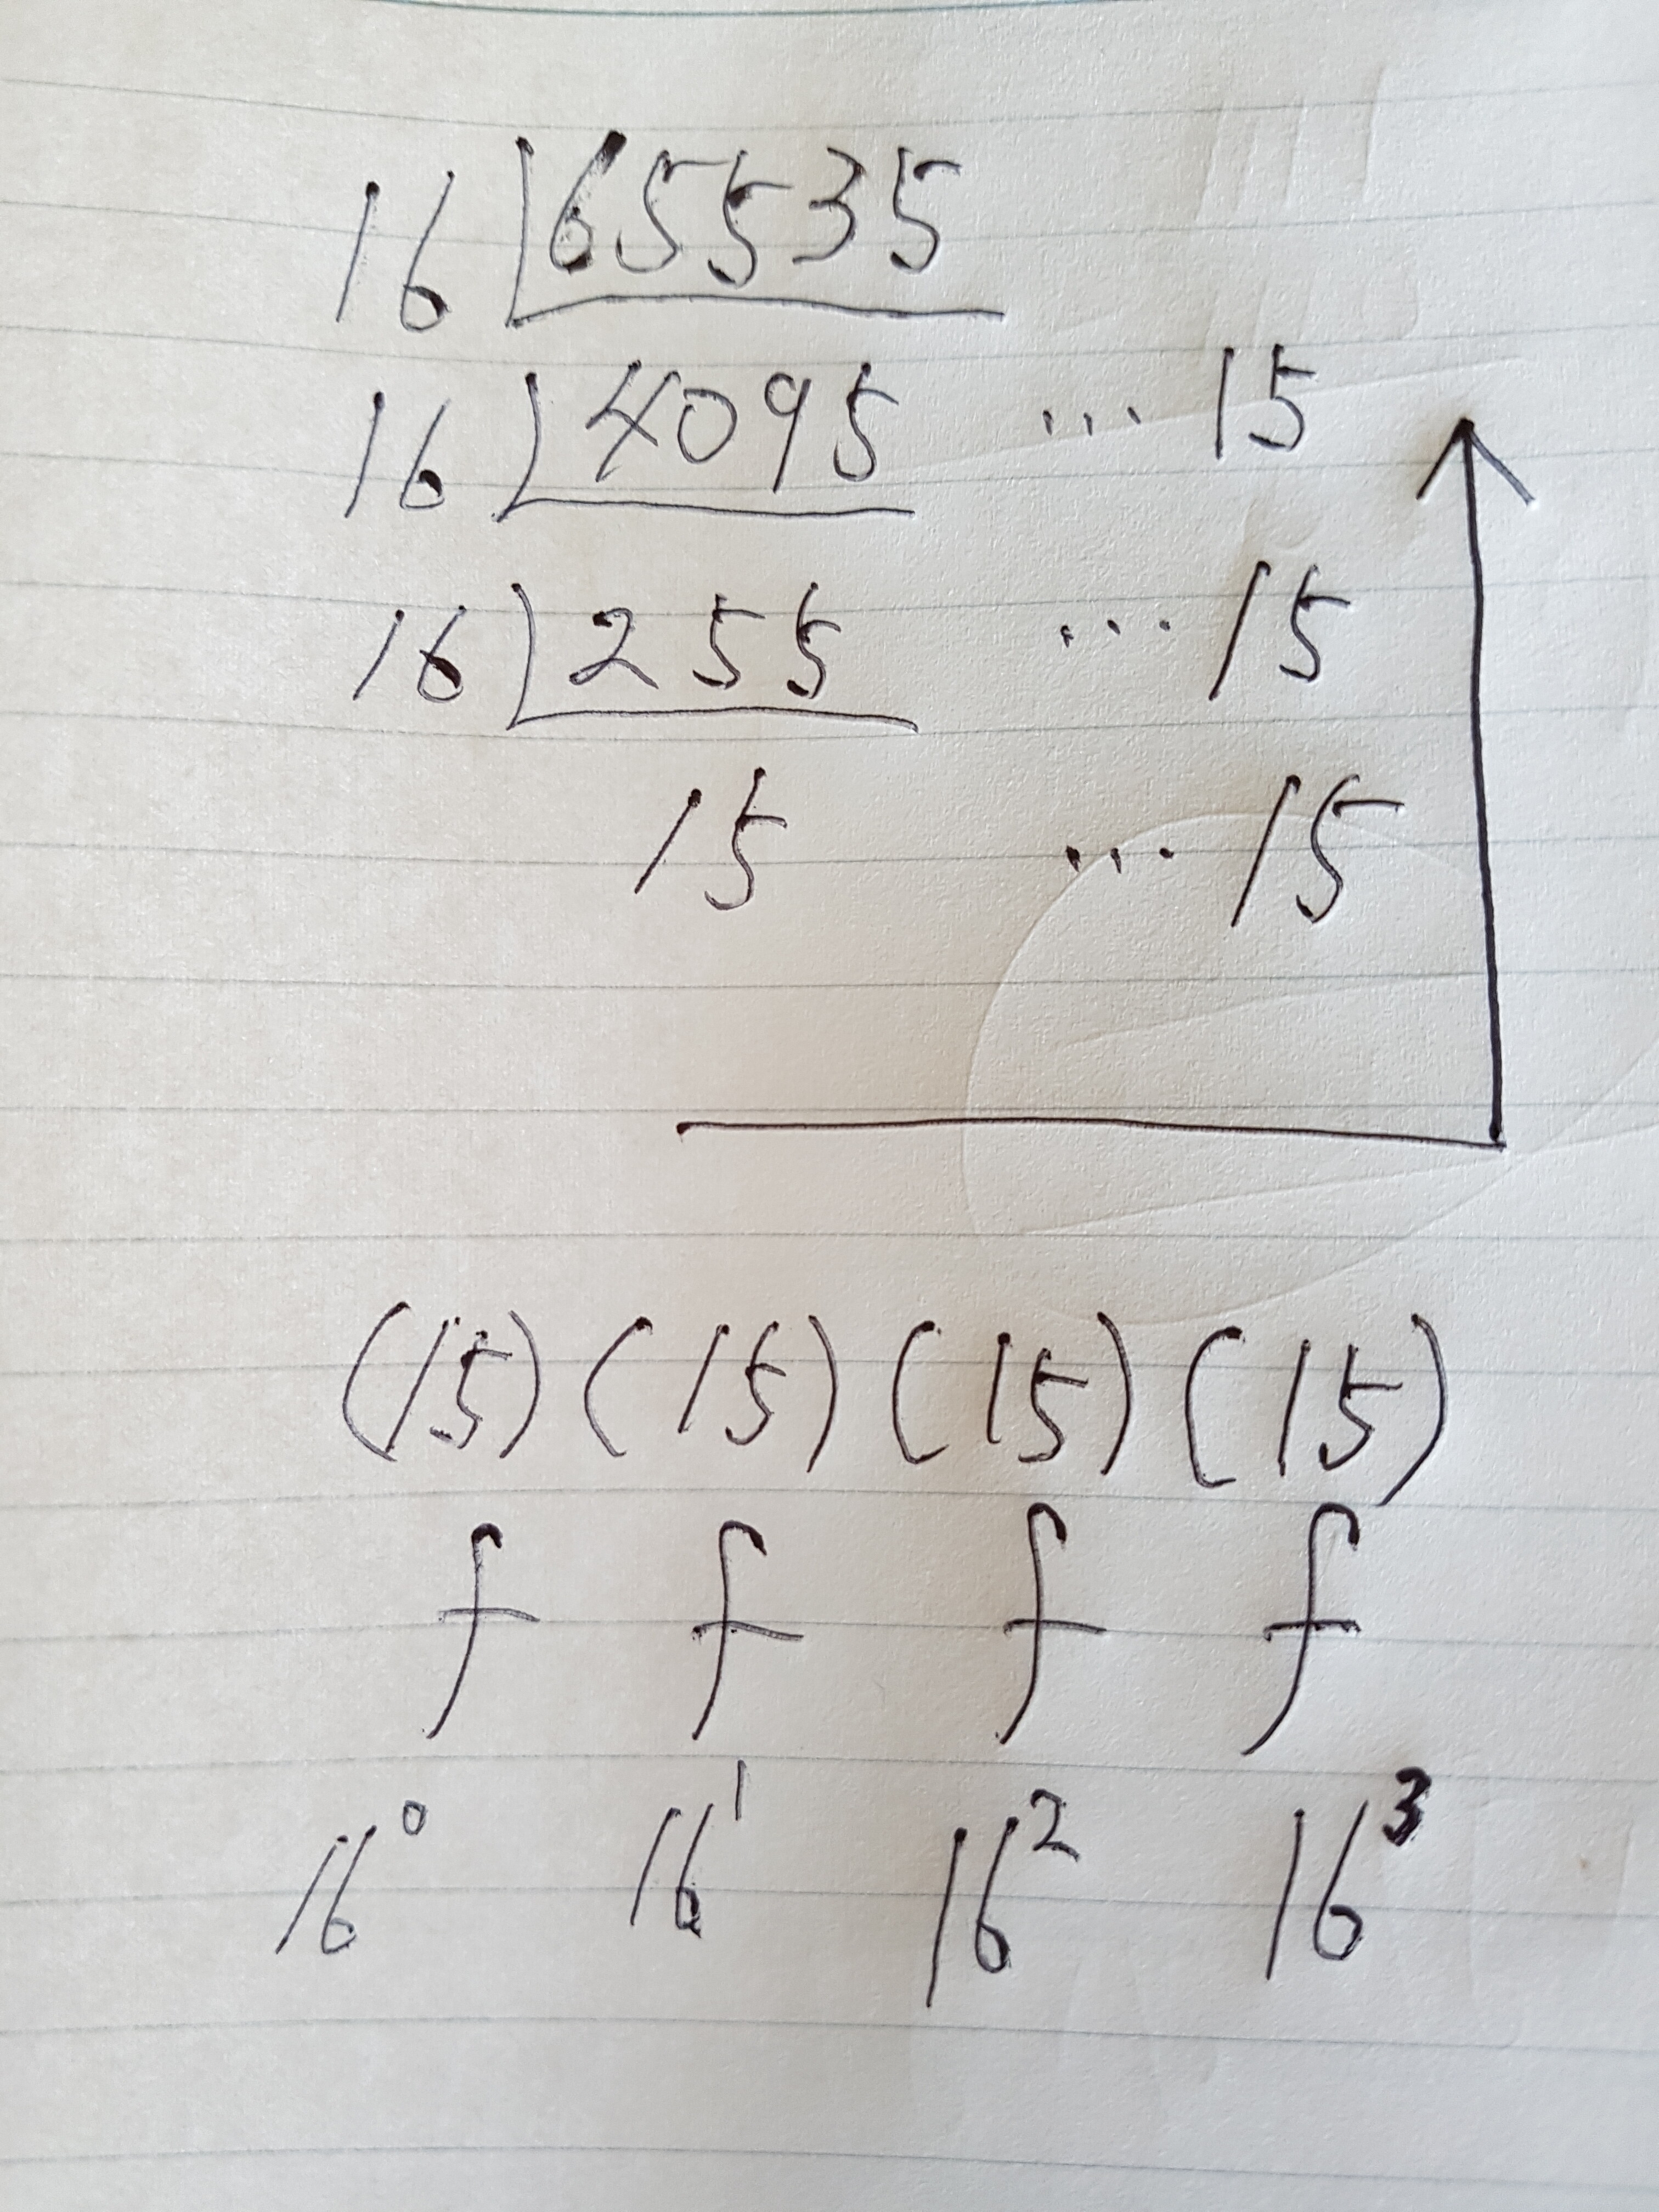 16 65535
16 4095 ... 15
16 255 ... 15
15 ... 15
(15) (15) (15) (15)
f f f f
16⁰ 16¹ 16² 16³